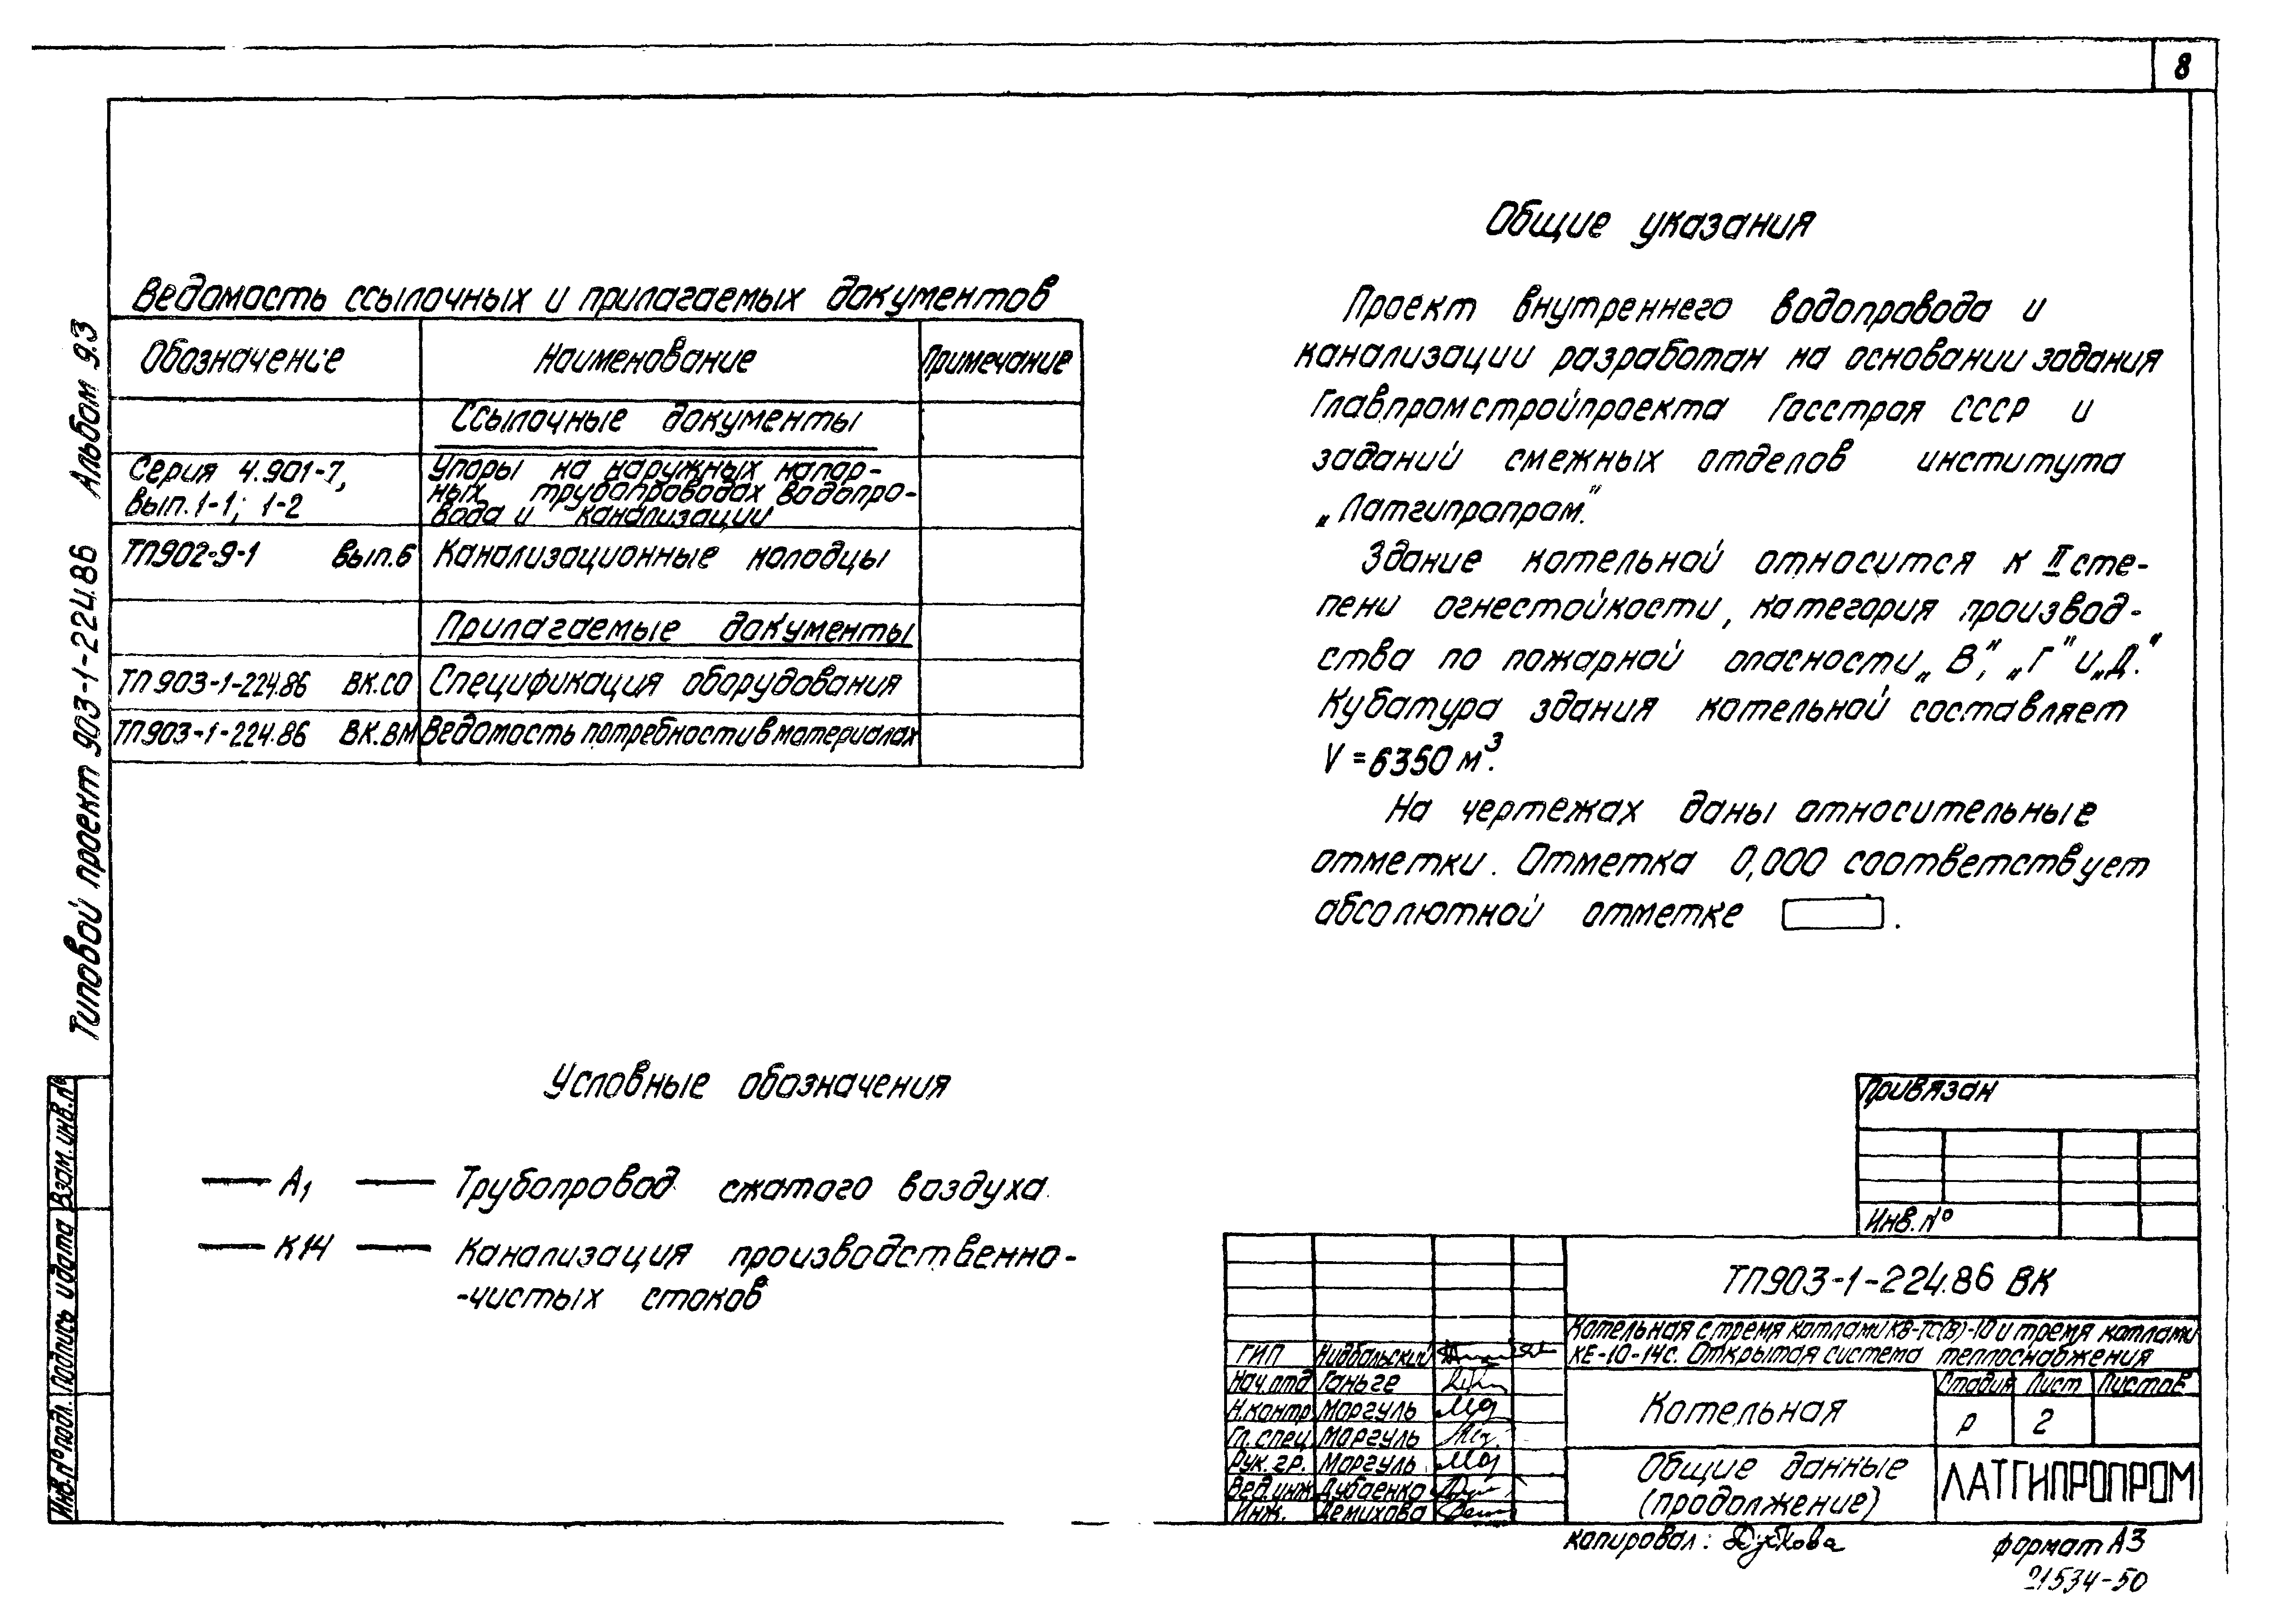 8
Типовой проект 903-1-224.86 Альбом 9.3
Ведомость ссылочных и прилагаемых документов
Обозначение Наименование Примечание
Ссылочные документы
Серия 4.901-7, Упоры на наружных напор-
вып. 1-1; 1-2 ных трубопроводах водопро-
вода и канализации
ТП902-9-1 вып.6 Канализационные колодцы
Прилагаемые документы
ТП 903-1-224.86 ВК.СО Спецификация оборудования
ТП903-1-224.86 ВК.ВМ Ведомость потребности в материалах
Условные обозначения
А1 Трубопровод сжатого воздуха
К14 Канализация производственно-
-чистых стоков
Общие указания
Проект внутреннего водопровода и
канализации разработан на основании задания
Главпромстройпроекта Госстроя СССР и
заданий смежных отделов института
„Латгипропром."
Здание котельной относится к II сте-
пени огнестойкости, категория производ-
ства по пожарной опасности „В", „Г" и „Д."
Кубатура здания котельной составляет
V=6350 м³.
На чертежах даны относительные
отметки. Отметка 0,000 соответствует
абсолютной отметке .
Привязан
Инв.№
ТП903-1-224.86 ВК
Котельная с тремя котлами КВ-ТС(В)-10 и тремя котлами
КЕ-10-14с. Открытая система теплоснабжения
ГИП Нидбальский
Нач.отд Ганьге
Н.контр Моргуль
Гл.спец Моргуль
Рук.гр. Моргуль
Вед.инж Дубаенко
Инж. Демихова
Котельная
Стадия Лист Листов
Р 2
Общие данные
(продолжение)
ЛАТГИПРОПРОМ
Инв.№ подл. Подпись и дата Взам.инв.№
копировал:
формат А3
21534-50